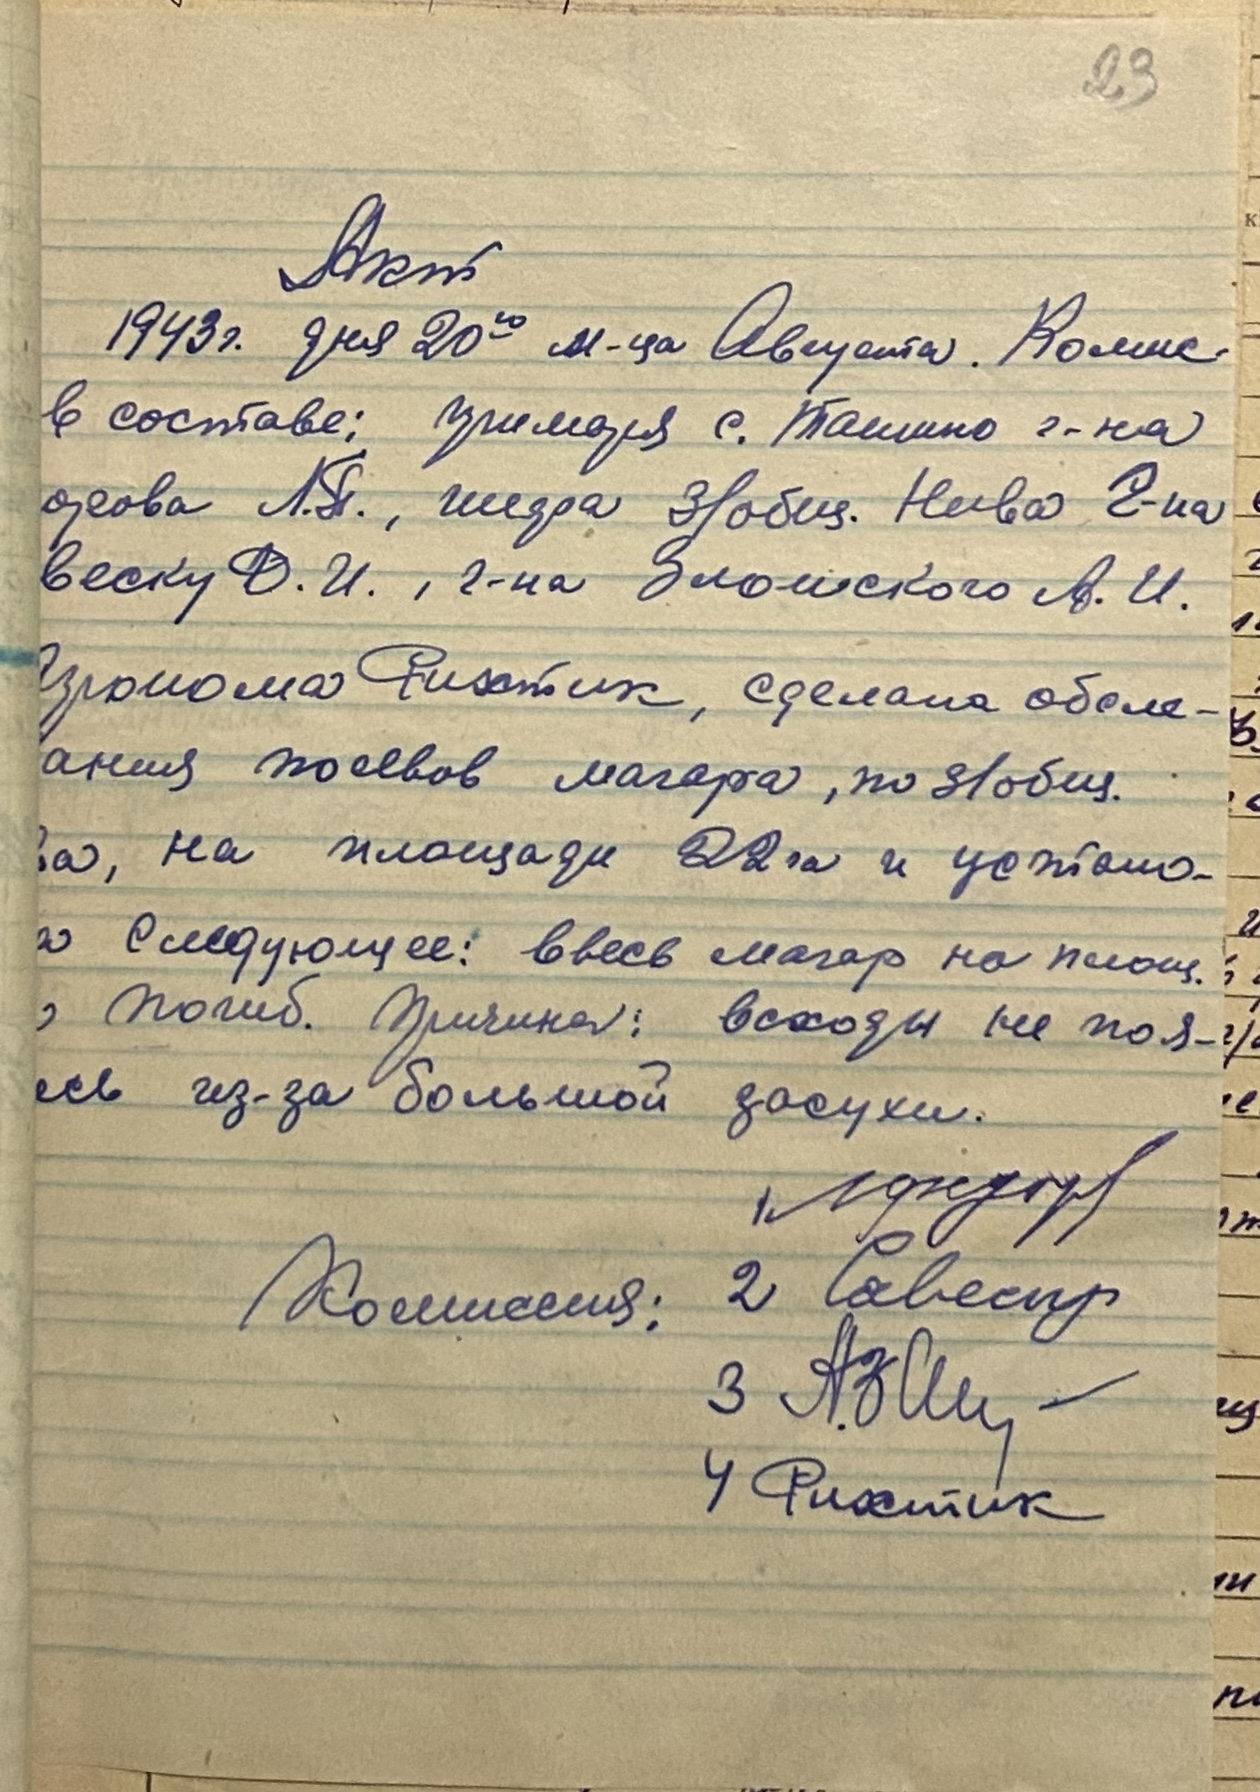 23
Акт
1943г. дня 20го м-ца Августа. Комис-
в составе: примаря с. Ташино г-на
Л.П., шефа з/общ. Нива г-на
веску Д.И., г-на А.И.
Агронома Рихтик, сделана обсле-
ания посевов магара, по з/общ.
ва, на площади 22га и устано-
о следующее: ввесь магар на площ.
погиб. Причина: всходы не поя-
есь из-за большой засухи.
1.
Комиссия: 2
3 А.З
4 Рихтик